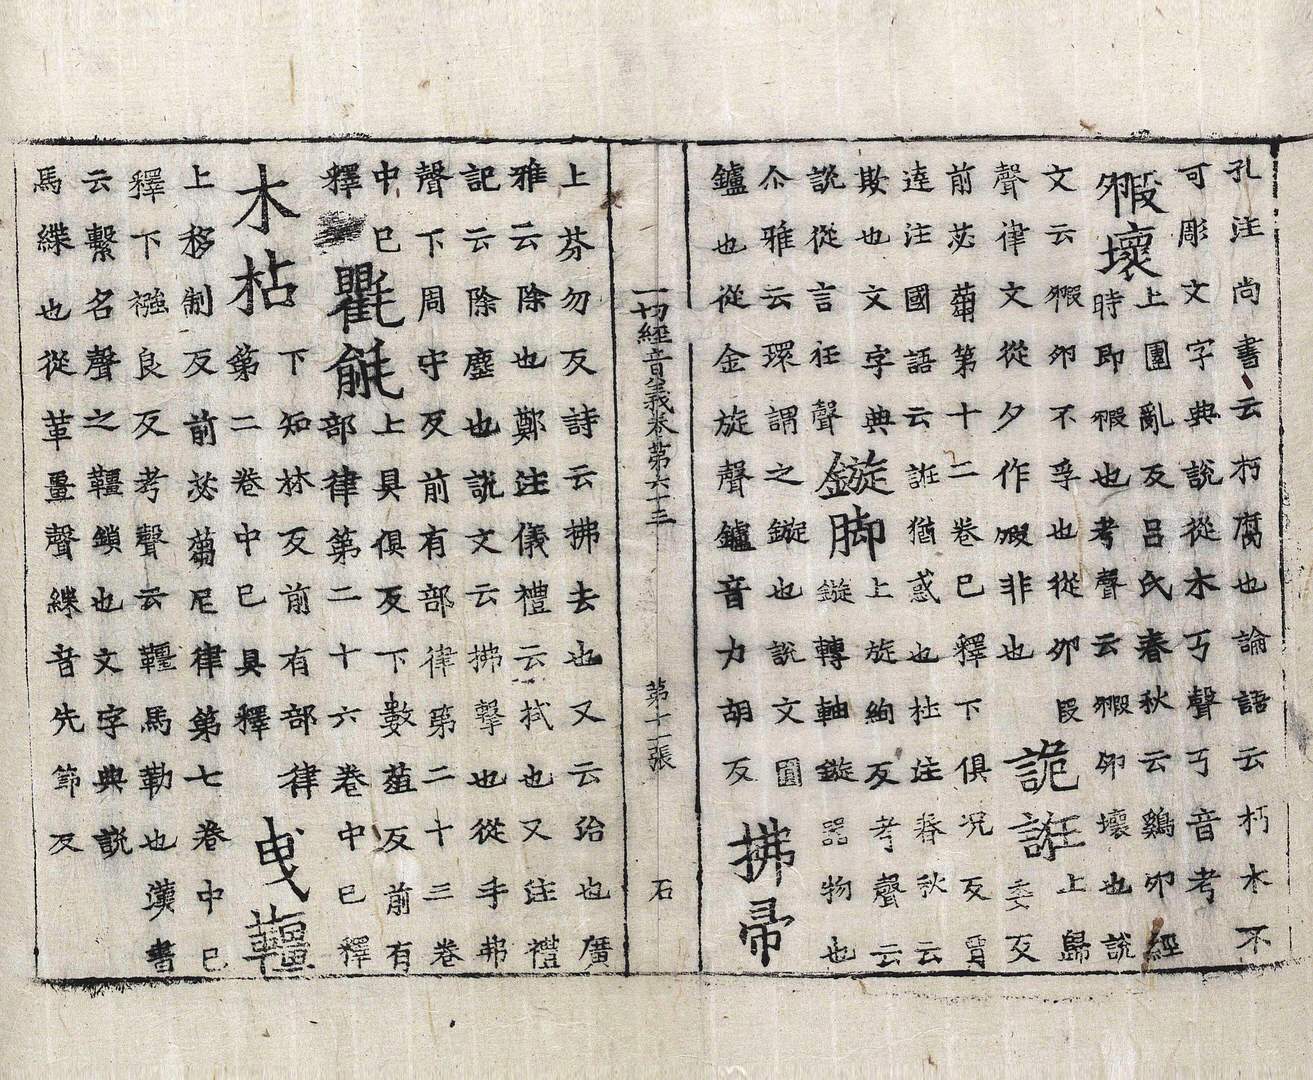 孔注尚書云朽腐也論語云朽木不
可彫文字典說從木丂聲丂音考
毈壞
上團亂反呂氏春秋云鷄卵經
時即毈也考聲云毈卵壞也說
文云毈卵不孚也從卵段
聲律文從夕作𣨛非也
詭誑
上歸
委反
前苾蒭第十二卷已釋下俱況反賈
逵注國語云誑猶惑也杜注春秋云
欺也文字典
說從言狂聲
鏇脚
上旋絢反考聲云
鏇轉軸鏇器物也
尒雅云環謂之鏇也說文圓
鑪也從金旋聲鑪音力胡反
拂帚
一切經音義卷第六十三 第十一張 石
上芬勿反詩云拂去也又云治也廣
雅云除也鄭注儀禮云拭也又注禮
記云除塵也說文云拂擊也從手弗
聲下周守反前有部律第二十三卷
中已
釋
氍毹
上具俱反下數蒩反前有
部律第二十六卷中已釋
木枮
下知林反前有部律
第二卷中已具釋
曳韁
上移制反前苾蒭尼律第七卷中已
釋下襁良反考聲云韁馬勒也漢書
云繫名聲之韁鎖也文字典說
馬緤也從革畺聲緤音先節反